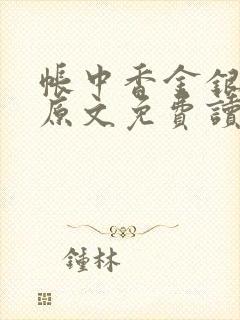 帳中香金銀
原文免費讀
鍾林